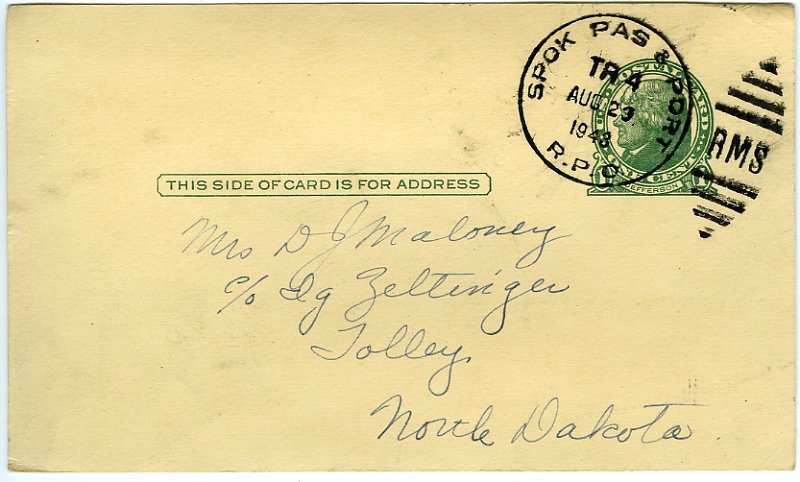 SPOK PAS & PORT
TR 4
AUG 29
1948
R.P.O.
RMS
U.S. POSTAL CARD
ONE CENT
JEFFERSON
THIS SIDE OF CARD IS FOR ADDRESS
Mrs D J Maloney
c/o Ig Zeltinger
Tolley
North Dakota